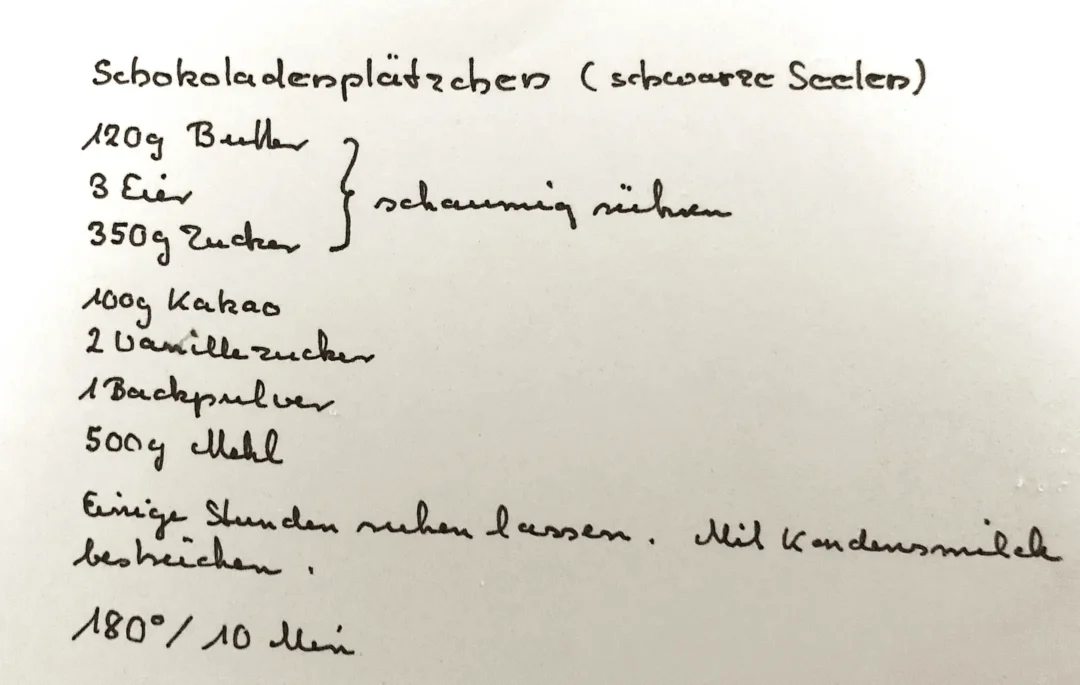 Schokoladenplätzchen (schwarze Seelen)
120g Butter
3 Eier
350g Zucker } schaumig rühren
100g Kakao
2 Vanillezucker
1 Backpulver
500g Mehl
Einige Stunden ruhen lassen. Mit Kondensmilch
bestreichen.
180°/10 Min